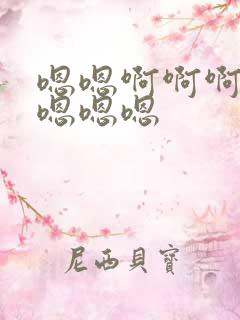 嗯嗯啊啊啊
嗯嗯嗯
尼西貝寶